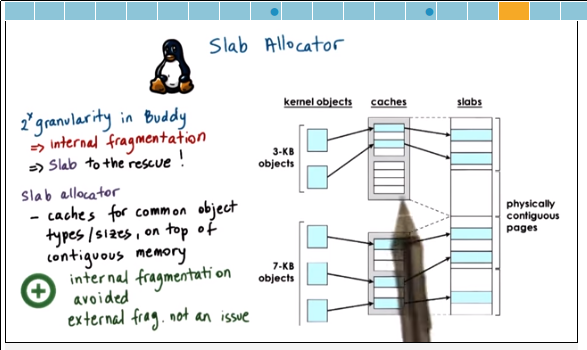 Slab Allocator
2^x granularity in Buddy
=> internal fragmentation
=> Slab to the rescue!
slab allocator
- caches for common object
types/sizes, on top of
contiguous memory
internal fragmentation
avoided
external frag. not an issue
kernel objects caches slabs
3-KB
objects
7-KB
objects
physically
contiguous
pages